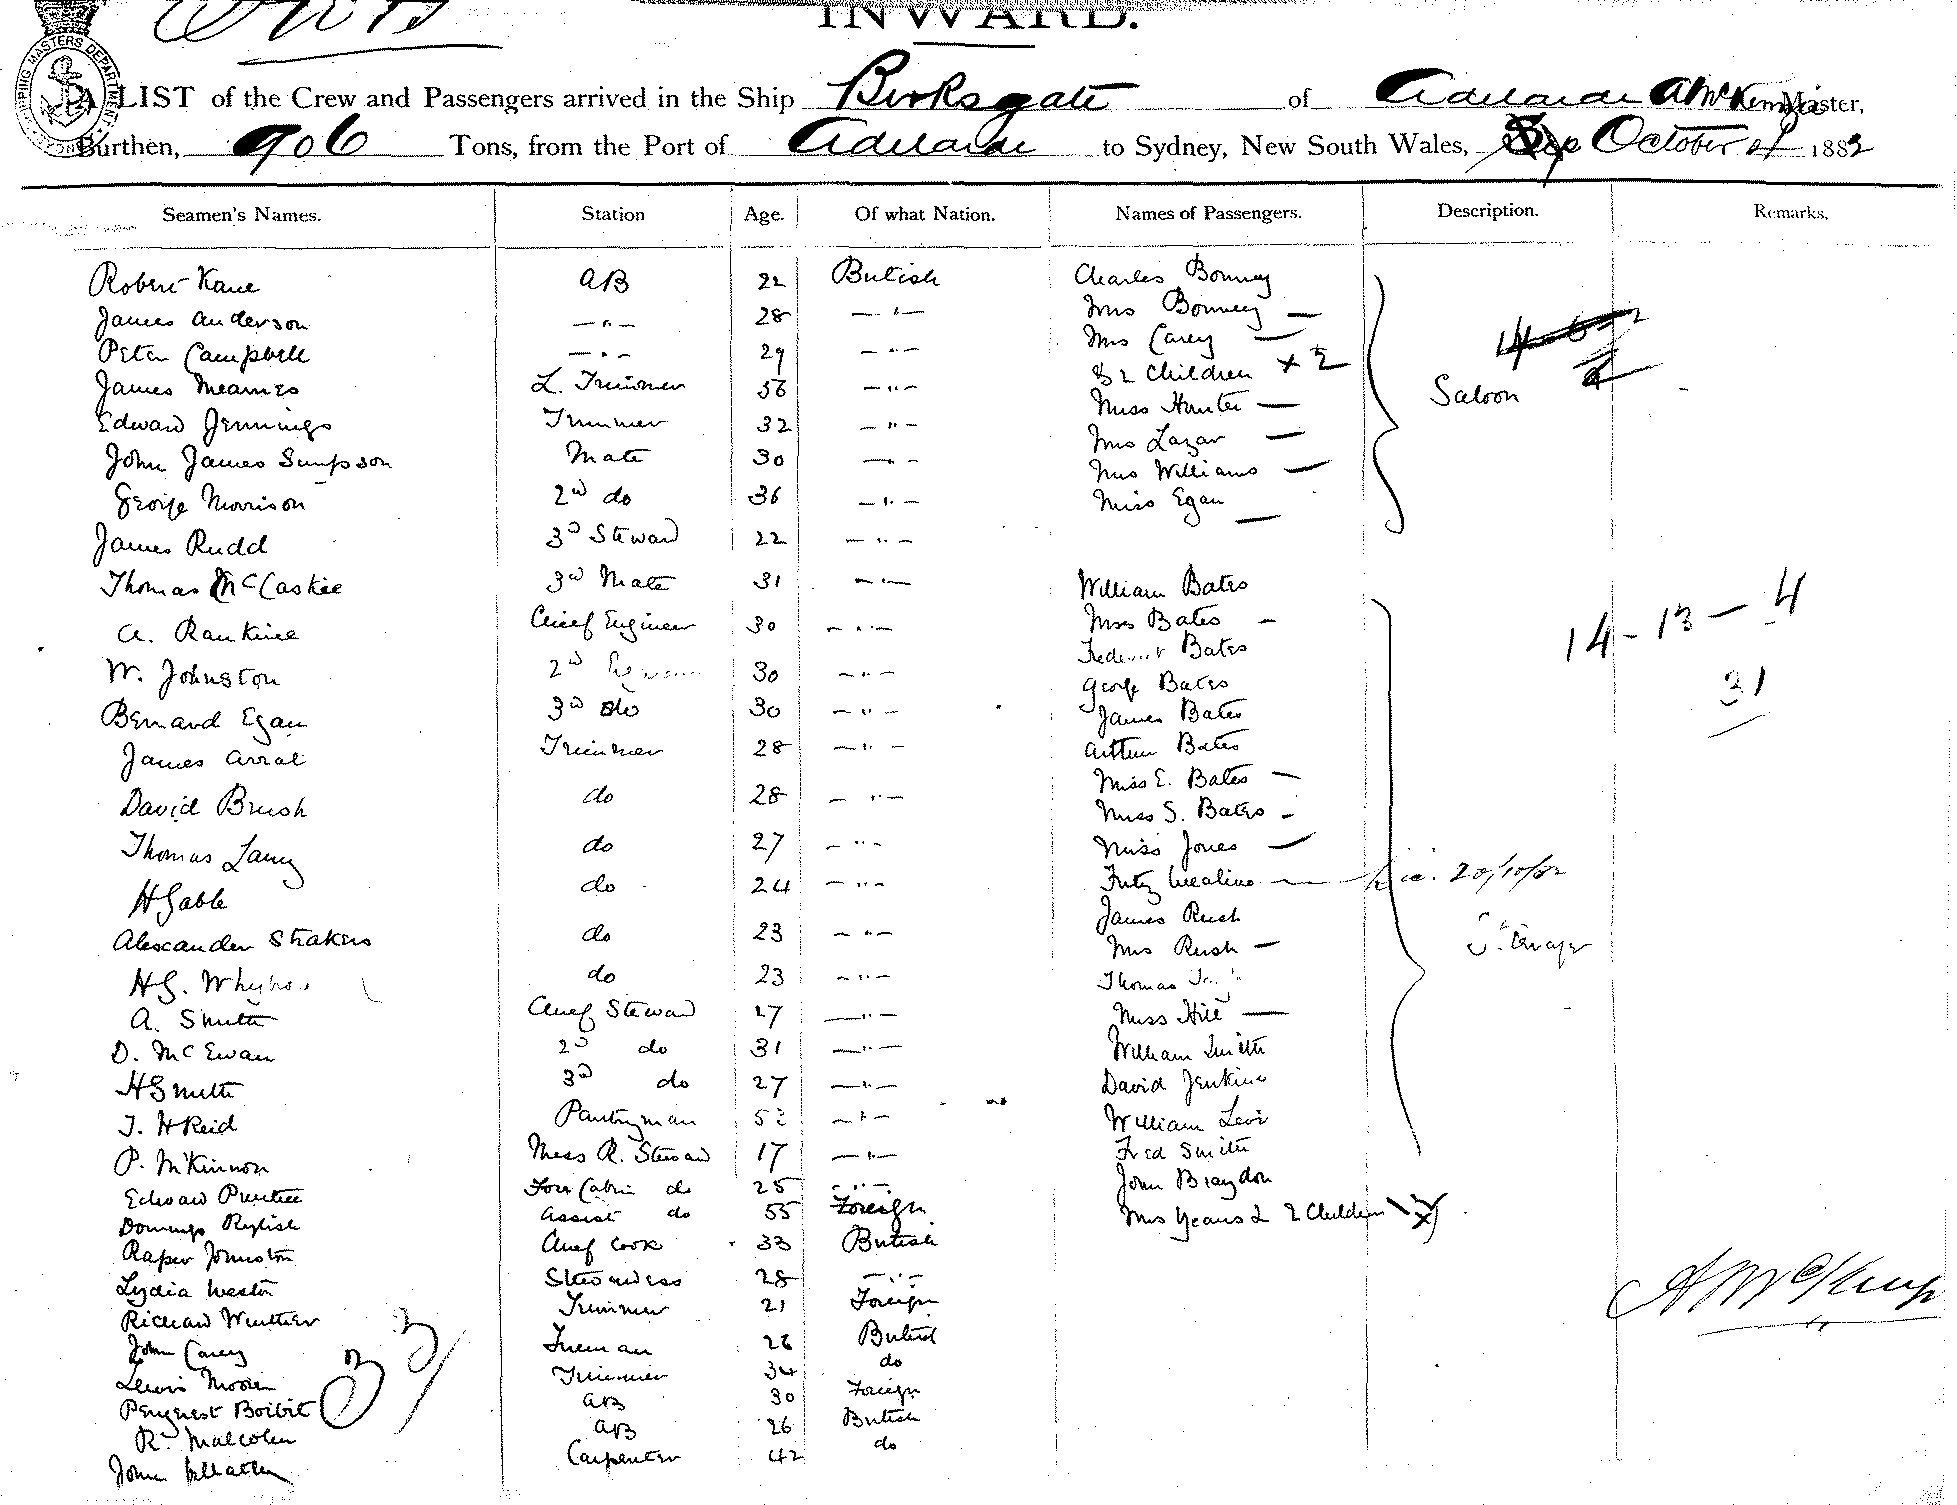 INWARD.
A LIST of the Crew and Passengers arrived in the Ship Birksgate of Adelaide A McKenzie Master,
Burthen, 906 Tons, from the Port of Adelaide to Sydney, New South Wales, October 1882
Seamen's Names. Station Age. Of what Nation. Names of Passengers. Description. Remarks.
Robert Kane AB 22 British Charles Bonney
James Anderson —"— 28 —"— Mrs Bonney —
Peter Campbell —"— 29 —"— Mrs Carey —
James Mearnes L. Trimmer 56 —"— & 2 Children x 2 Saloon
Edward Jennings Trimmer 32 —"— Miss Hunter —
John James Simpson Mate 30 —"— Mrs Lazar —
George Morrison 2nd do 36 —"— Mrs Williams —
Miss Egan —
James Rudd 3d Steward 22 —"—
Thomas McCaskie 3rd Mate 31 —"— William Bates
A. Rankine Chief Engineer 30 —"— Mrs Bates — 14 - 13 - 4
W. Johnston 2nd 30 —"— Frederick Bates 31
George Bates
Bernard Egan 3rd do 30 —"— James Bates
James Arrat Trimmer 28 —"— Arthur Bates
Miss E. Bates —
David Brush do 28 —"— Miss S. Bates —
Thomas do 27 —"— Miss Jones —
H Gable do 24 —"— Fritz 20/10/82
James Rush
Alexander Strakers do 23 —"— Mrs Rush —
H G. do 23 —"— Thomas
A. Smith Chief Steward 27 —"— Miss Hill —
D. McEwan 2d do 31 —"— William Smith
H Smith 3d do 27 —"— David Jenkins
J. H Reid Pantryman 52 —"— William Levi
P. McKinnon Mess R. Steward 17 —"— Fred Smith
Edward Prentice Fore Cabin do 25 —"— John Braydon
Domingo Assist do 55 Foreign Mrs Years & 2 Children
Raper Johnston Chief Cook 33 British
Lydia Weston Stewardess 28 —"—
Richard Winther Trimmer 21 Foreign
John Carey Fireman 26 British
Lewis Trimmer 34 do
AB 30 Foreign
R. Malcolm AB 26 British
John Carpenter 42 do